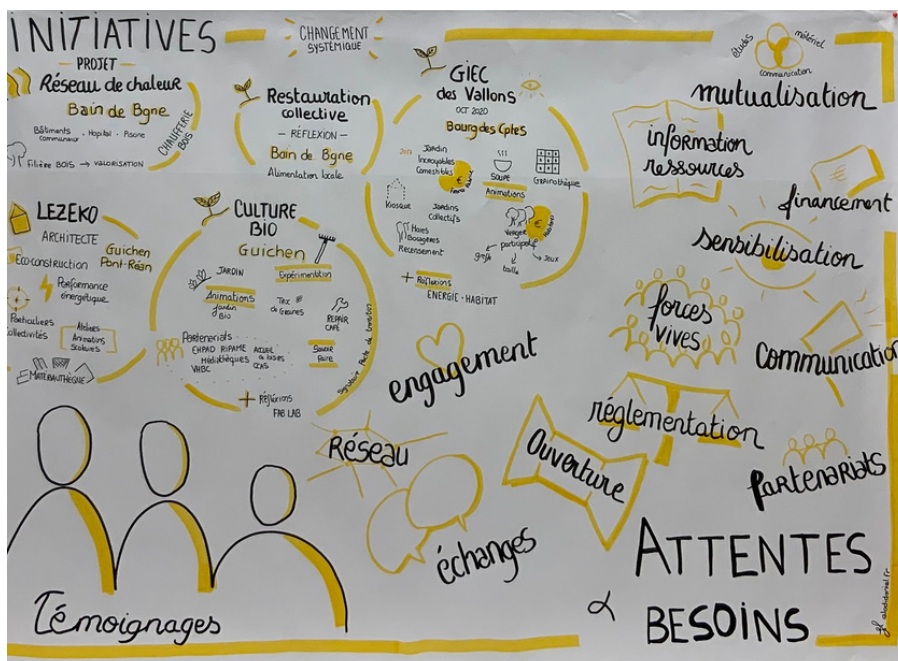 INITIATIVES
CHANGEMENT
SYSTÉMIQUE
PROJET
Réseau de chaleur
Bain de Bgne
Bâtiments
communaux . Hopital . Piscine
CHAUFFERIE
BOIS
Filière BOIS → VALORISATION
Restauration
collective
- RÉFLEXION -
Bain de Bgne
Alimentation locale
GIEC
des Vallons
OCT 2020
Bourg des Cptes
Jardin
Incroyables
Comestibles
SOUPE
Animations
Grainothèque
Kiosque
Jardins
Collectifs
Haies
Bocagères
Recensement
Verger
participatif
greffe
taille
Jeux
+ Réflexions
ENERGIE - HABITAT
LEZEKO
ARCHITECTE
Eco-construction
Guichen
Pont-Réan
Performance
énergétique
Particuliers
Collectivités
Ateliers
Animations
Scolaires
MATÉRIAUTHÈQUE
CULTURE
BIO
Guichen
JARDIN
Expérimentation
Animations
Jardin
BIO
Troc
de Graines
REPAIR
CAFÉ
Partenariats
EHPAD RIPAME
Médiathèques
VHBC
CCAS
Savoir
Faire
Signataire Pacte de transition
+ Réflexions
FAB LAB
études
matériel
communication
mutualisation
information
ressources
financement
sensibilisation
forces
vives
communication
engagement
réglementation
Réseau
Ouverture
partenariats
échanges
Témoignages
ATTENTES
&
BESOINS